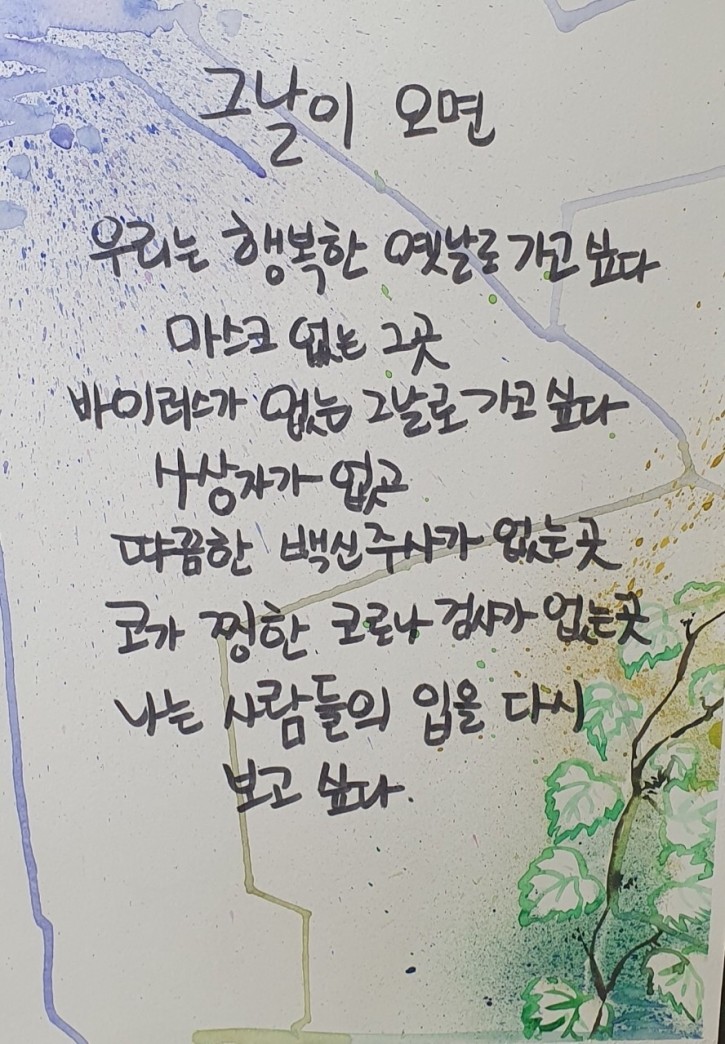 그날이 오면
우리는 행복한 옛날로 가고 싶다
마스크 없는 그곳
바이러스가 없는 그날로 가고 싶다
사상자가 없고
따끔한 백신주사가 없는 곳
코가 찡한 코로나 검사가 없는 곳
나는 사람들의 입을 다시
보고 싶다.